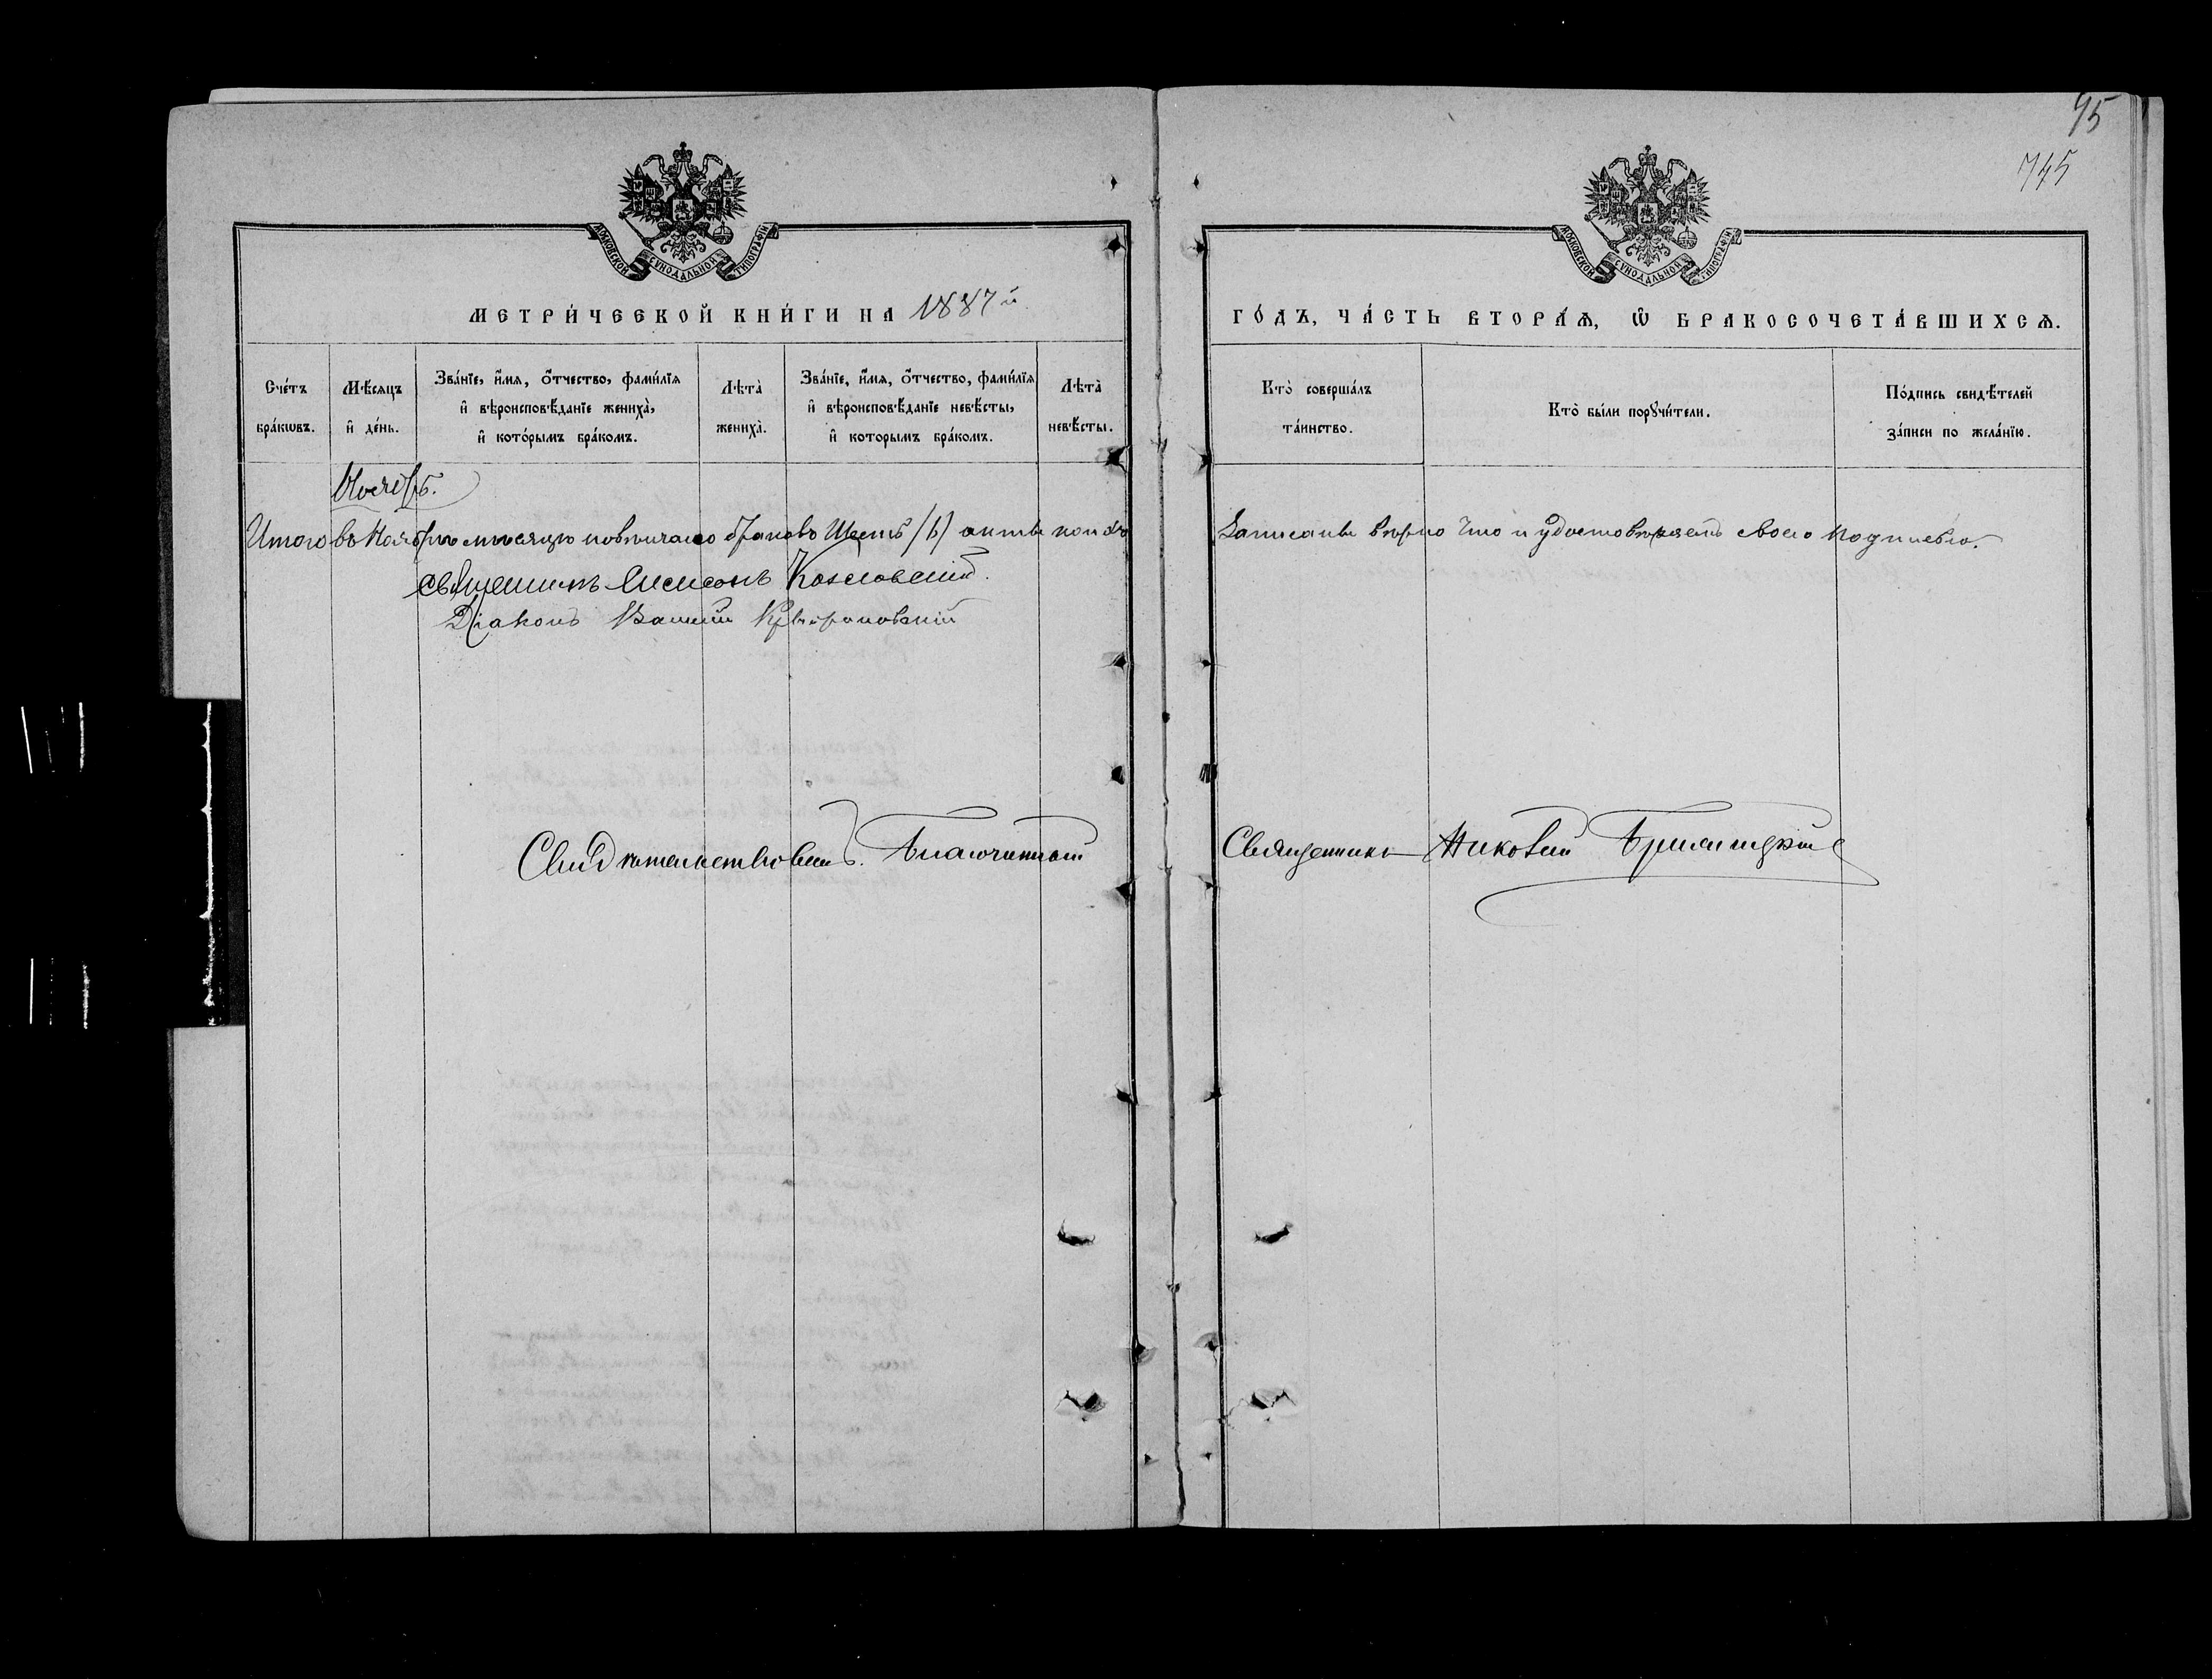 95
745
МОСКОВСКОЙ СѴНОДАЛЬНОЙ ТИПОГРАФІИ
МОСКОВСКОЙ СѴНОДАЛЬНОЙ ТИПОГРАФІИ
МЕТРИ́ЧЕСКОЙ КНИ́ГИ НА 1887й
ГО́ДЪ, ЧА́СТЬ ВТОРА́Ѧ, Ѽ БРАКОСОЧЕТА́ВШИХСѦ.
Сче́тъ бра́кѡвъ.
Мѣ́сяцъ и҆ де́нь.
Зва́нїе, и҆́мя, ѻ҆́тчество, фами́лїя и҆ вѣроисповѣ́данїе жениха̀, и҆ кото́рымъ бра́комъ.
Лѣта̀ жениха̀.
Зва́нїе, и҆́мя, ѻ҆́тчество, фами́лїя и҆ вѣроисповѣ́данїе невѣ́сты, и҆ которымъ бра́комъ.
Лѣта̀ невѣ́сты.
Кто̀ соверша́лъ та́инство.
Кто̀ бы́ли порꙋчи́тели.
По́дпись свидѣ́телей за́писи по жела́нїю.
Ноябрь.
Итого въ Ноябрѣ мѣсяцѣ повѣнчано браковъ Шесть /6/ акты коихъ
Записаны вѣрно что и удостовѣряемъ своею подписью.
Священникъ Козловскій.
Діаконъ
Свидѣтельствовалъ. Благочинный
Священникъ